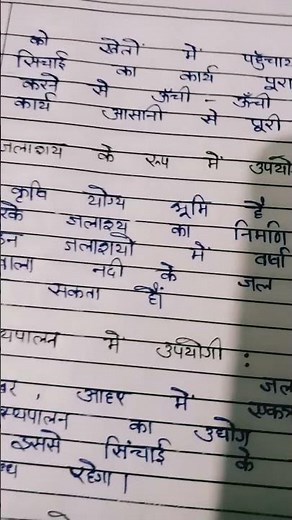 को खेतों में पहुँचाय
सिंचाई का कार्य पूरा
करने से ऊँची - ऊँची
कार्य आसानी से पूरी
जलाशय के रूप में उपयो
कृषि योग्य भूमि है
रके जलाशय का निर्माण
न जलाशयों में वर्षा
वाला नदी के जल
सकता हैं
यपालन में उपयोगी :
जल
र, आहर में एकत्र
स्यपालन का उद्योग
इससे सिंचाई के
ध रहेगा।